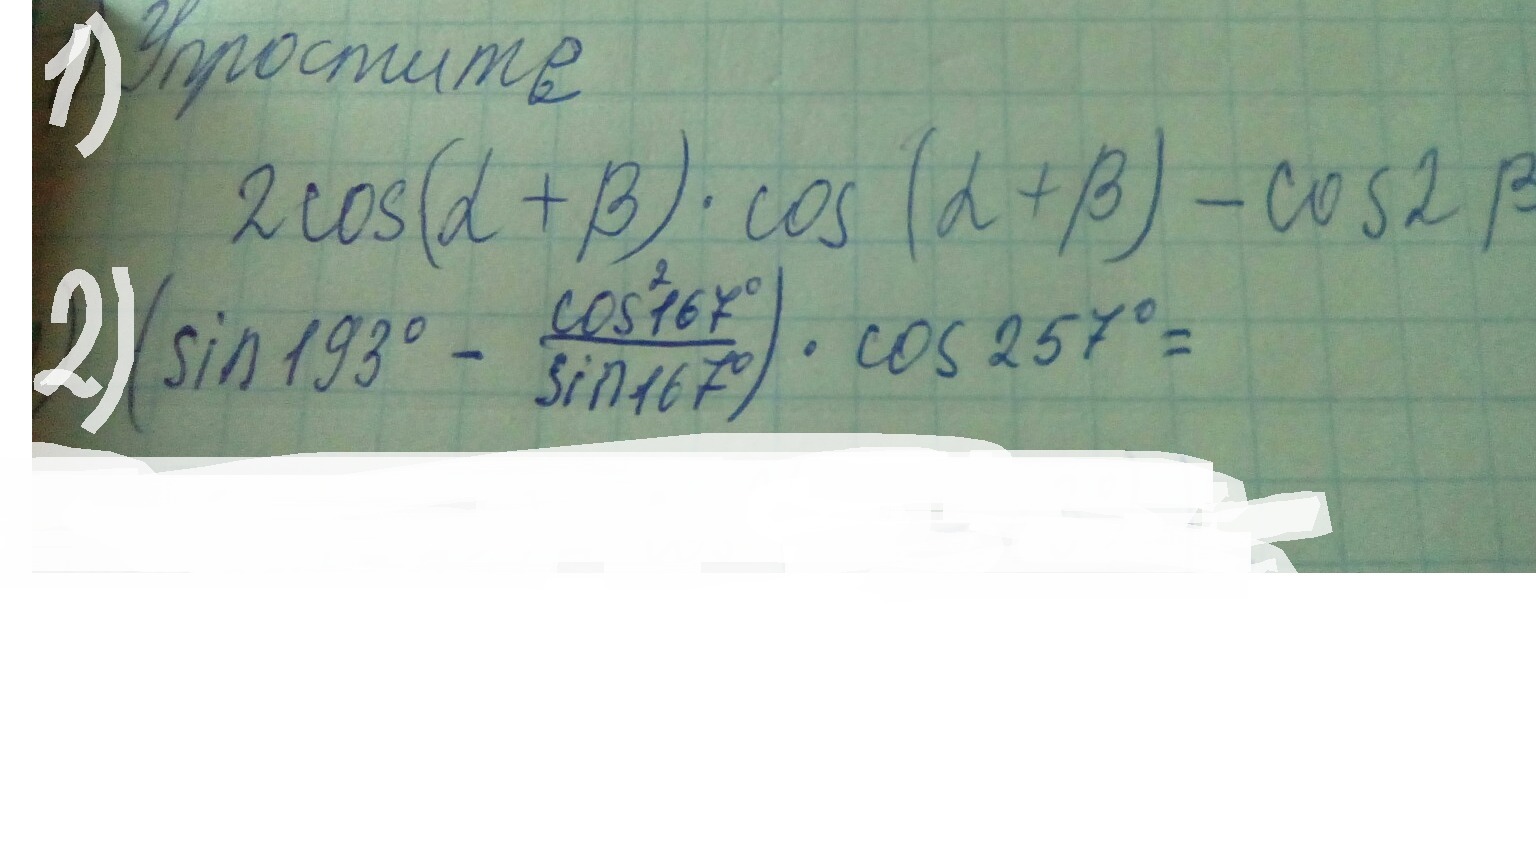 1) Упростите
2cos(α + β) · cos (α + β) - cos2β
2) (sin193° - cos²167°/sin167°) · cos257°=